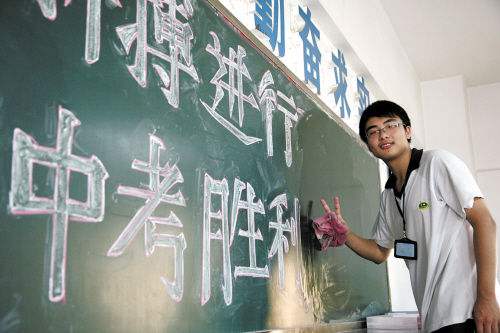 勤奋求
拼搏进行
中考胜利